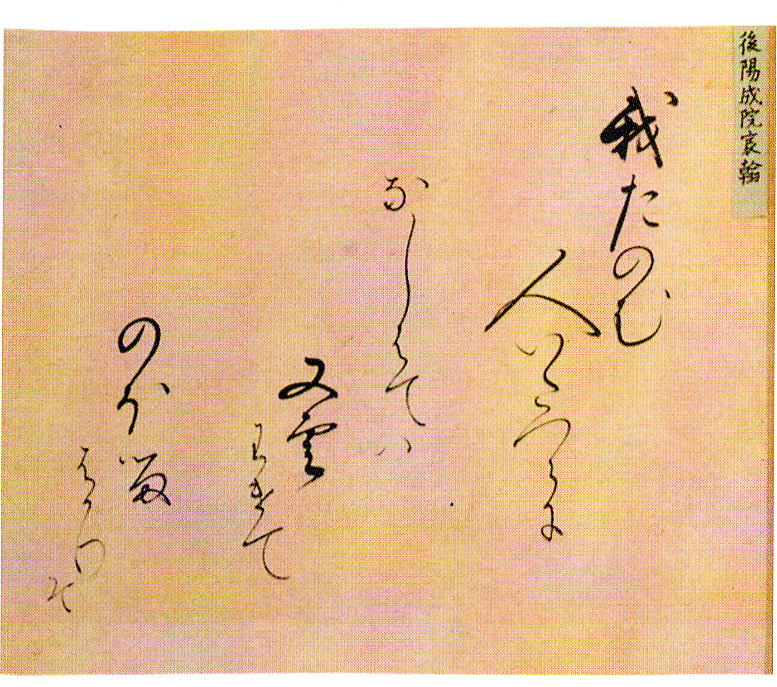 後陽成院宸翰
我たのむ
人いたつらに
なしはては
又雲
わけて
のほる
はかりそ